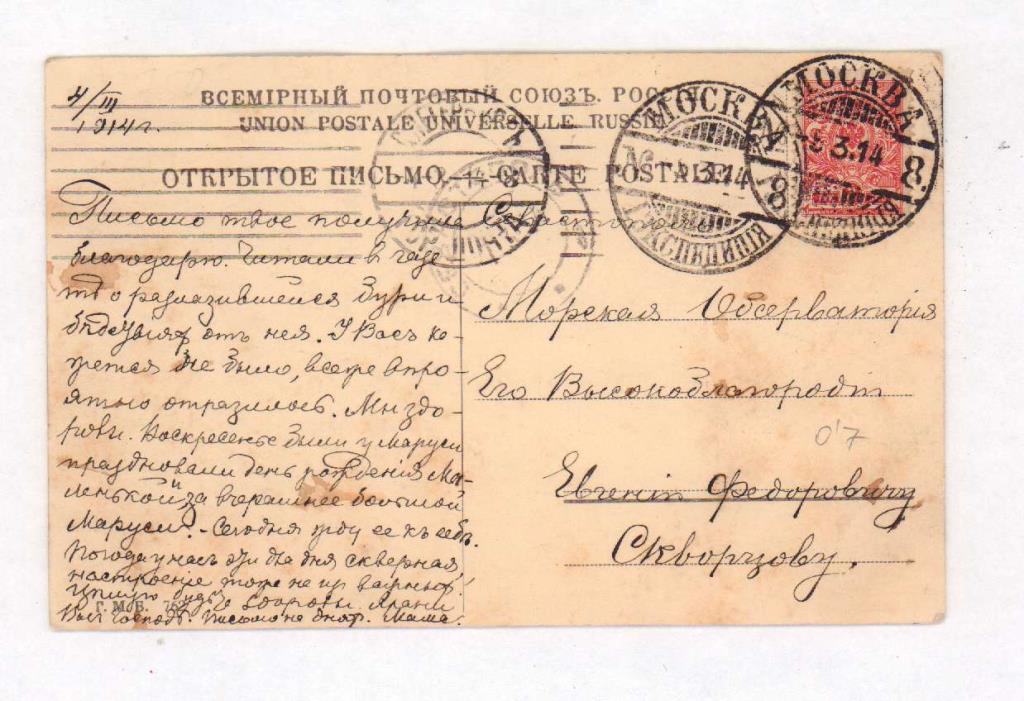 4/III
1914 г.
ВСЕМІРНЫЙ ПОЧТОВЫЙ СОЮЗЪ. РОС
UNION POSTALE UNIVERSELLE. RUSSIE
ОТКРЫТОЕ ПИСЬМО.—CARTE POSTALE
МОСКВА
4.3.14
8
ЭКСПЕДИЦІЯ
МОСКВА
3.14
8
Письмо твое получила
благодарю. Читали в газе-
тѣ о разлазившейся бури и
бѣдствіях отъ нея. У Васъ ка-
жется не было, все же
отразилось. Мы здо-
ровы. Воскресенье были у Маруси
праздновали день рожденія Ма-
ленькой, за вчерашнее большой
Маруси. - Сегодня жду ее къ себѣ.
Погода у насъ эти два дня скверная,
настроение тоже не из важных.
Цѣлую, будьте здоровы. Храни
Васъ Господь. Мама.
Г. М. Б.
Морская Обсерваторія
Его Высокоблагородію
Евгенію Федоровичу
Скворцову.